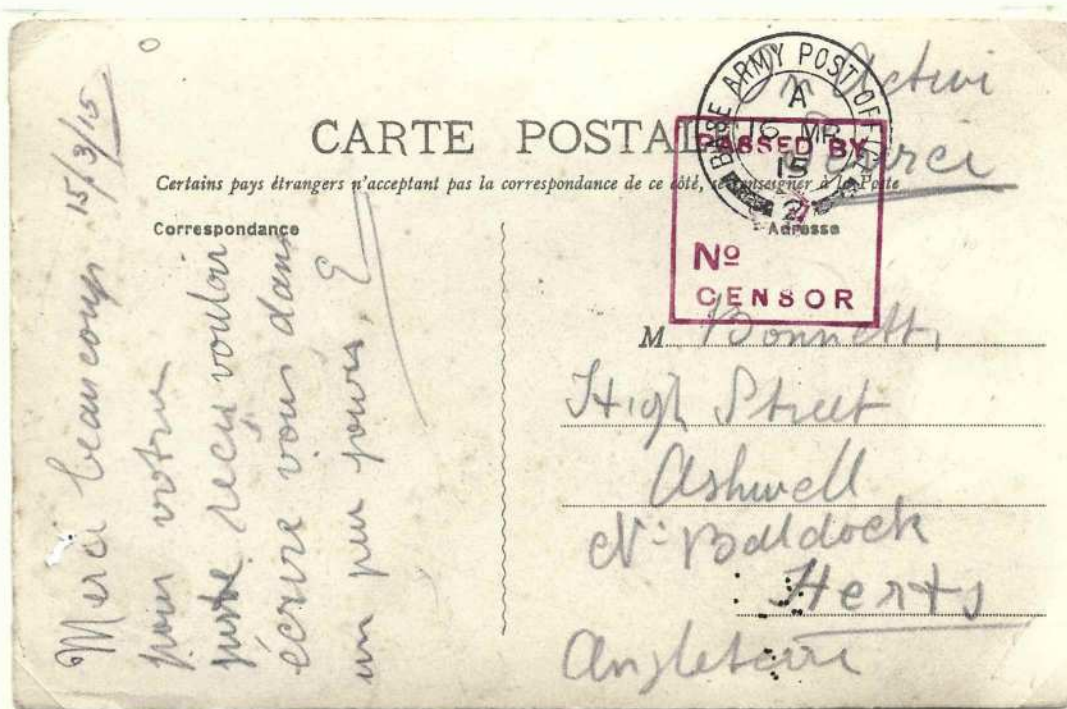 CARTE POSTALE
Certains pays étrangers n'acceptant pas la correspondance de ce côté, se renseigner à la Poste
Correspondance
Merci beaucoup 15/3/15
pour votre
juste recu vouloir
écrire vous dans
un peu jours, E
On Active
Service
BASE ARMY POST OFFICE
A
16 MR
15
2
PASSED BY
Nº
CENSOR
Adresse
M Bonnett,
High Street
Ashwell
Nr Baldock
Herts
Angleterre